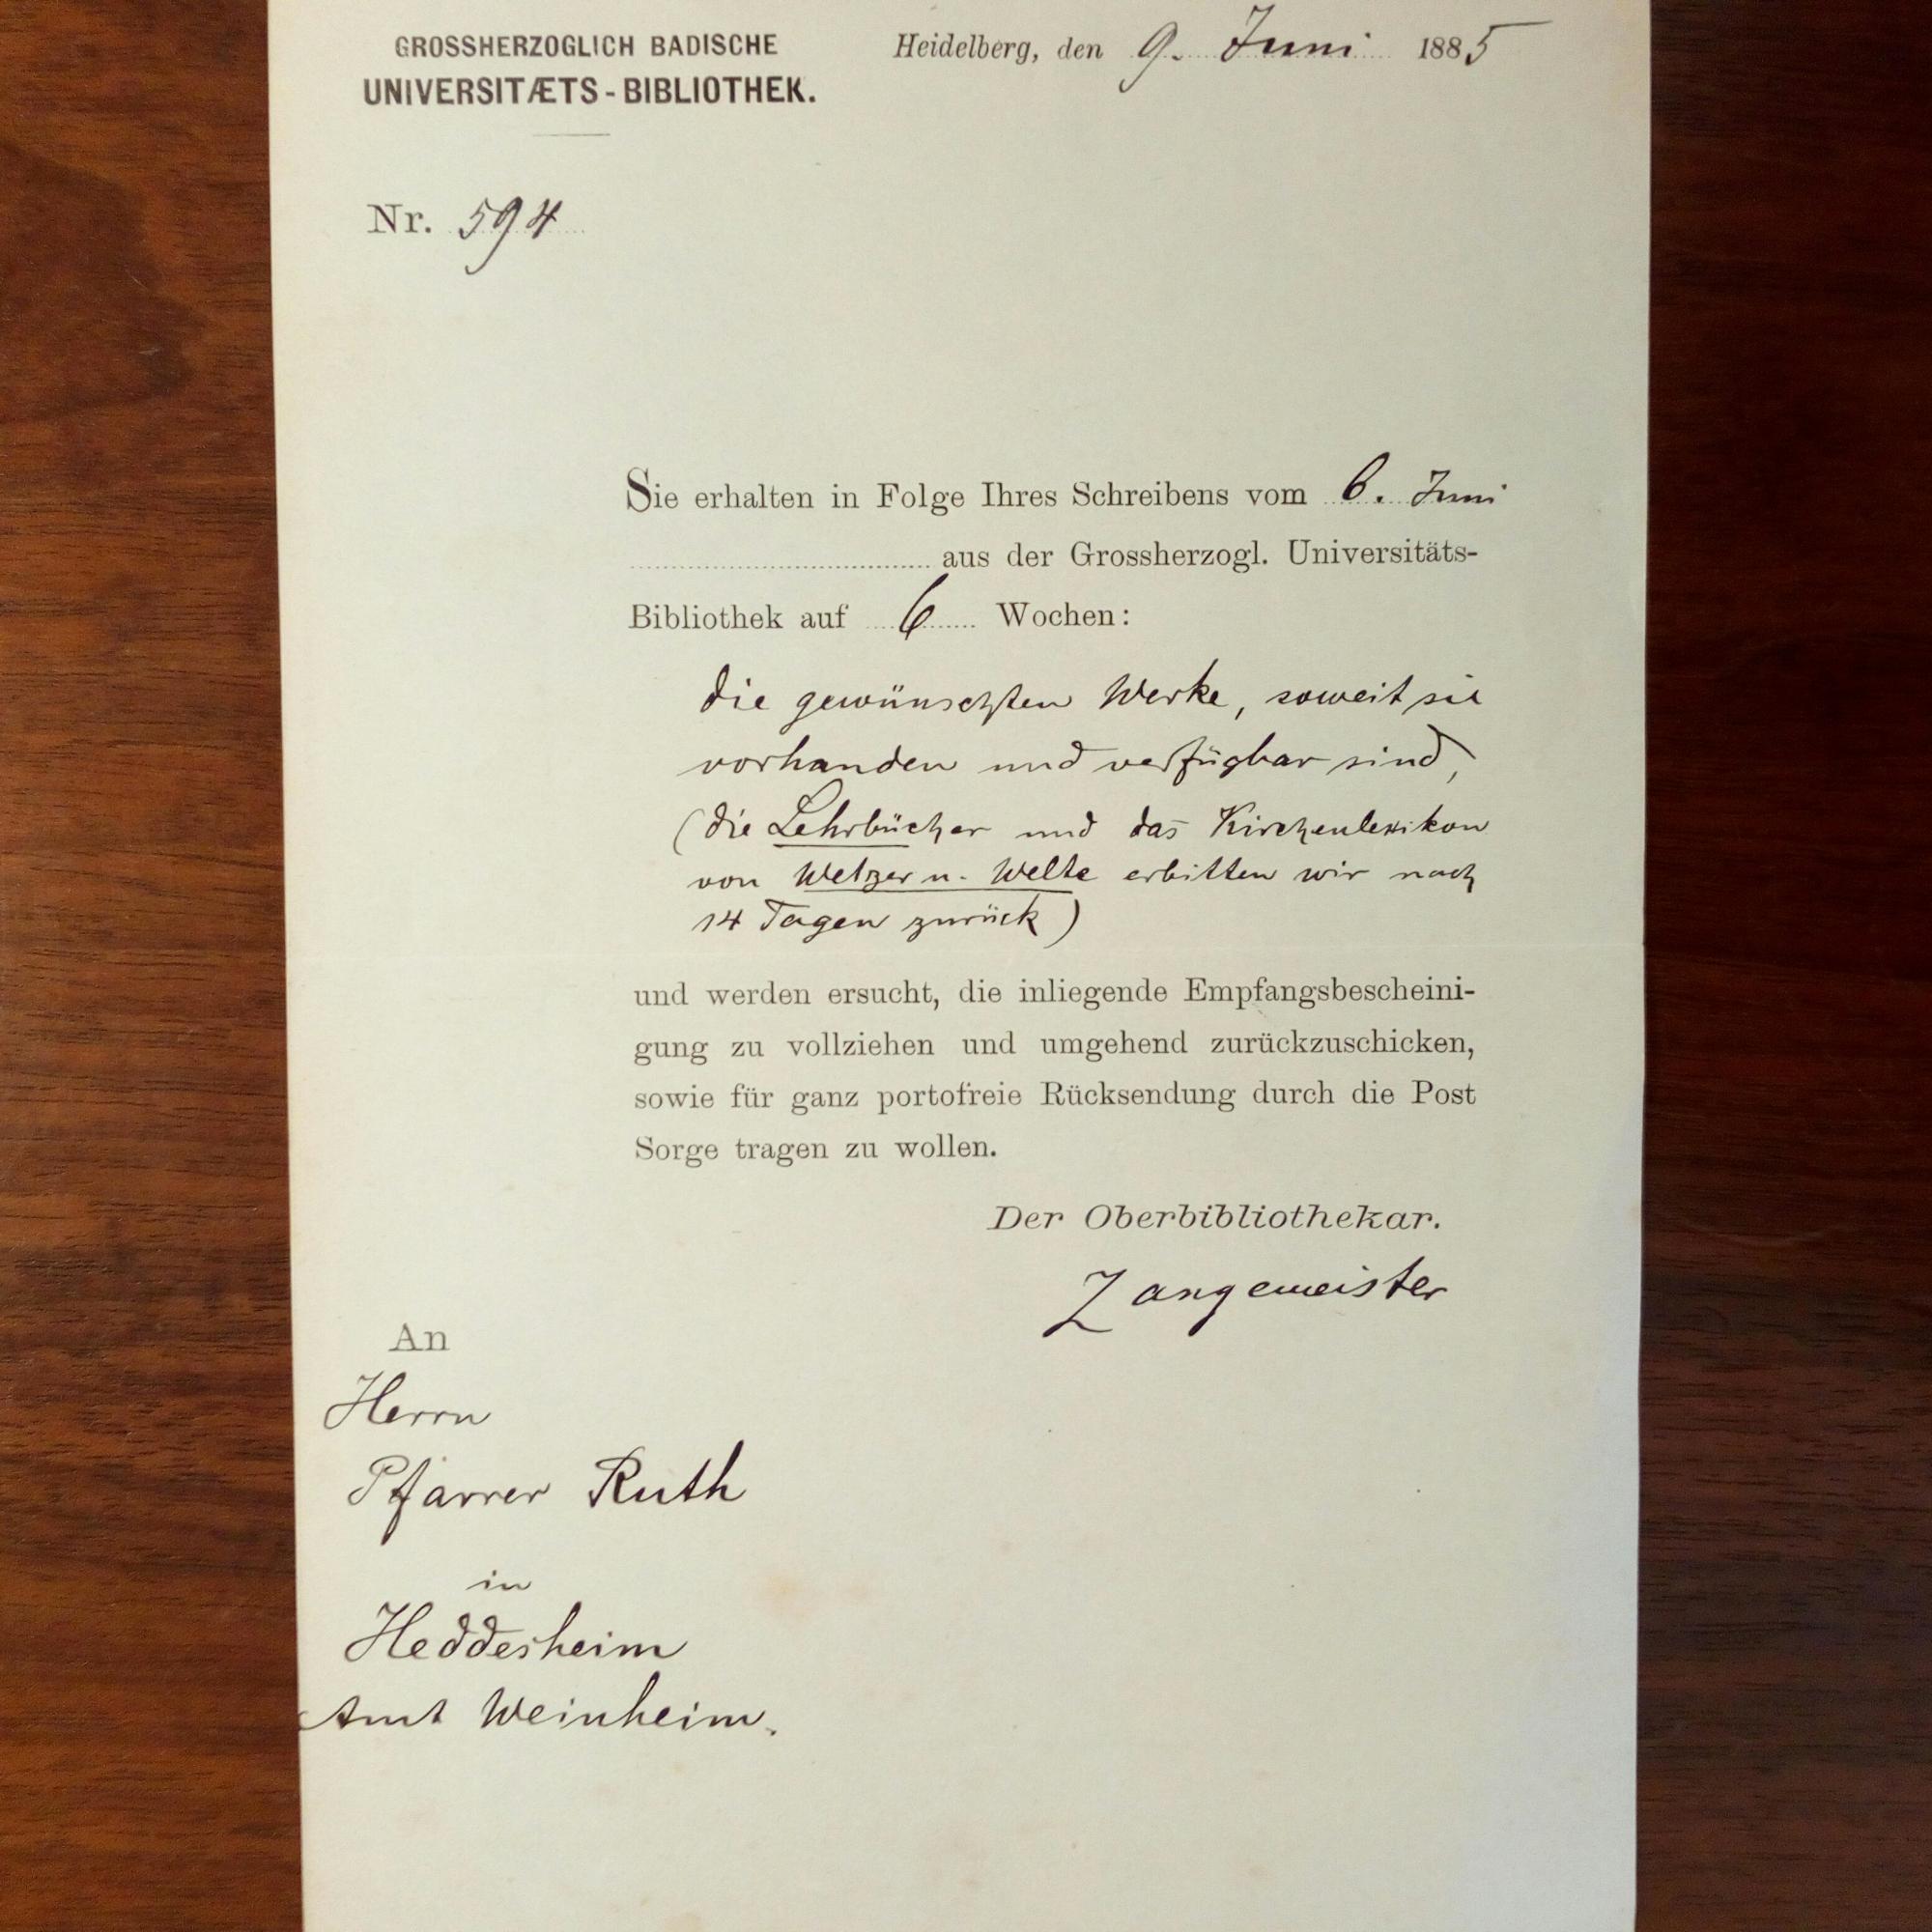 GROSSHERZOGLICH BADISCHE
UNIVERSITÆTS-BIBLIOTHEK.
Heidelberg, den 9. Juni 1885
Nr. 594
Sie erhalten in Folge Ihres Schreibens vom 6. Juni
aus der Grossherzogl. Universitäts-
Bibliothek auf 6 Wochen:
die gewünschten Werke, soweit sie
vorhanden und verfügbar sind,
(die Lehrbücher und das Kirchenlexikon
von Wetzer u. Welte erbitten wir nach
14 Tagen zurück)
und werden ersucht, die inliegende Empfangsbescheini-
gung zu vollziehen und umgehend zurückzuschicken,
sowie für ganz portofreie Rücksendung durch die Post
Sorge tragen zu wollen.
Der Oberbibliothekar.
Zangemeister
An
Herrn
Pfarrer Ruth
in
Heddesheim
Amt Weinheim.